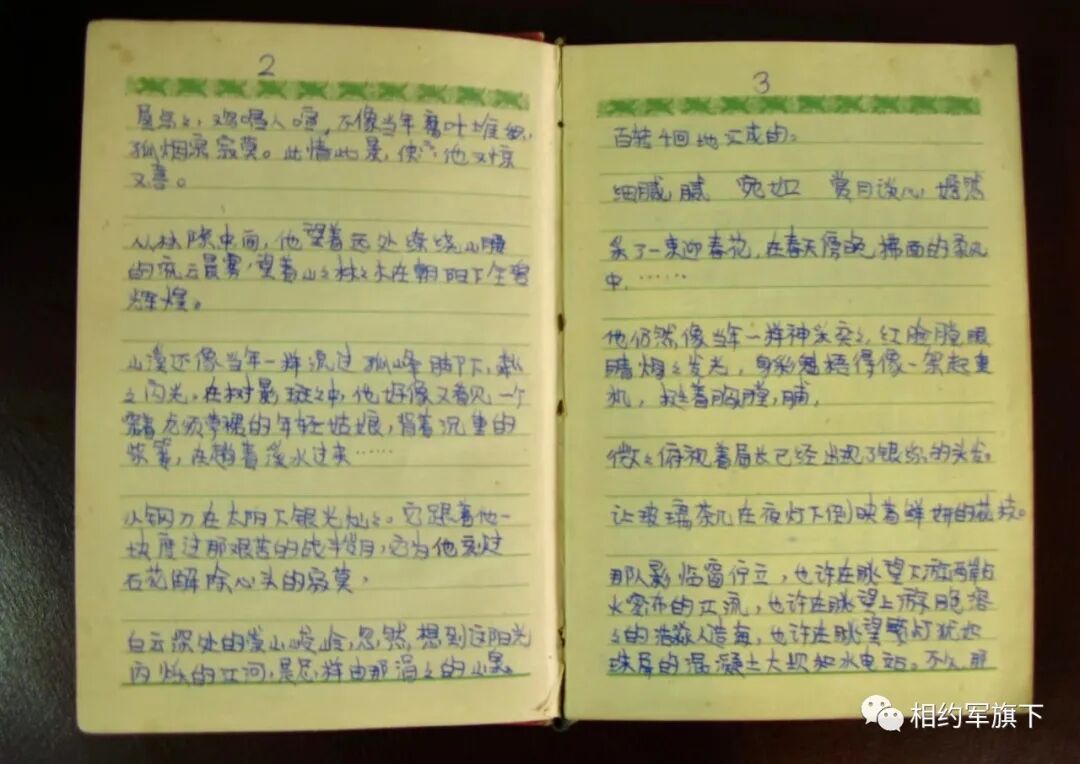 2
星点々,鸡唱人喧,不像当年舊叶堆积,
孤烟流寂莫。此情此景,使 他又惊
又喜。
从林隙中间,他望着远处缭绕山腰
的流云晨雾,望着山々林々木在朝阳下全罩
辉煌。
山溪还像当年一样流过孤峰脚下,粼
々闪光。在树影斑々中,他好像又看见一个
年轻姑娘,背着沉重的
,在趟着溪水过来……
小钢刀在太阳下银光灿々。它跟着他一
块度过那艰苦的战斗岁月,它为他刻过
石花解除心头的寂莫,
白云深处的崇山峻岭,忽然,想到这阳光
闪烁的江河,是怎样由那涓々的山泉。
3
百转千回地汇成的。
细腻,腻 宛如 赏月谈心 嫣然
采了一束迎春花,在春天傍晚拂面的柔风
中,……
他仍然像当年一样神采奕々,红脸膛,眼
睛烟々发光,身彩魁梧得像一架起重
机,挺着胸膛,脯,
微々俯视着局长已经出现了银丝的头发。
让玻璃茶几在夜灯下倒映着鲜妍的花枝。
那人影临窗伫立,也许在眺望下游两岸
水密布的江流,也许在眺望上游
々的浩淼人造海,也许在眺望繁灯犹如
珠屏的混凝土大坝和水电站。不久,那
相约军旗下